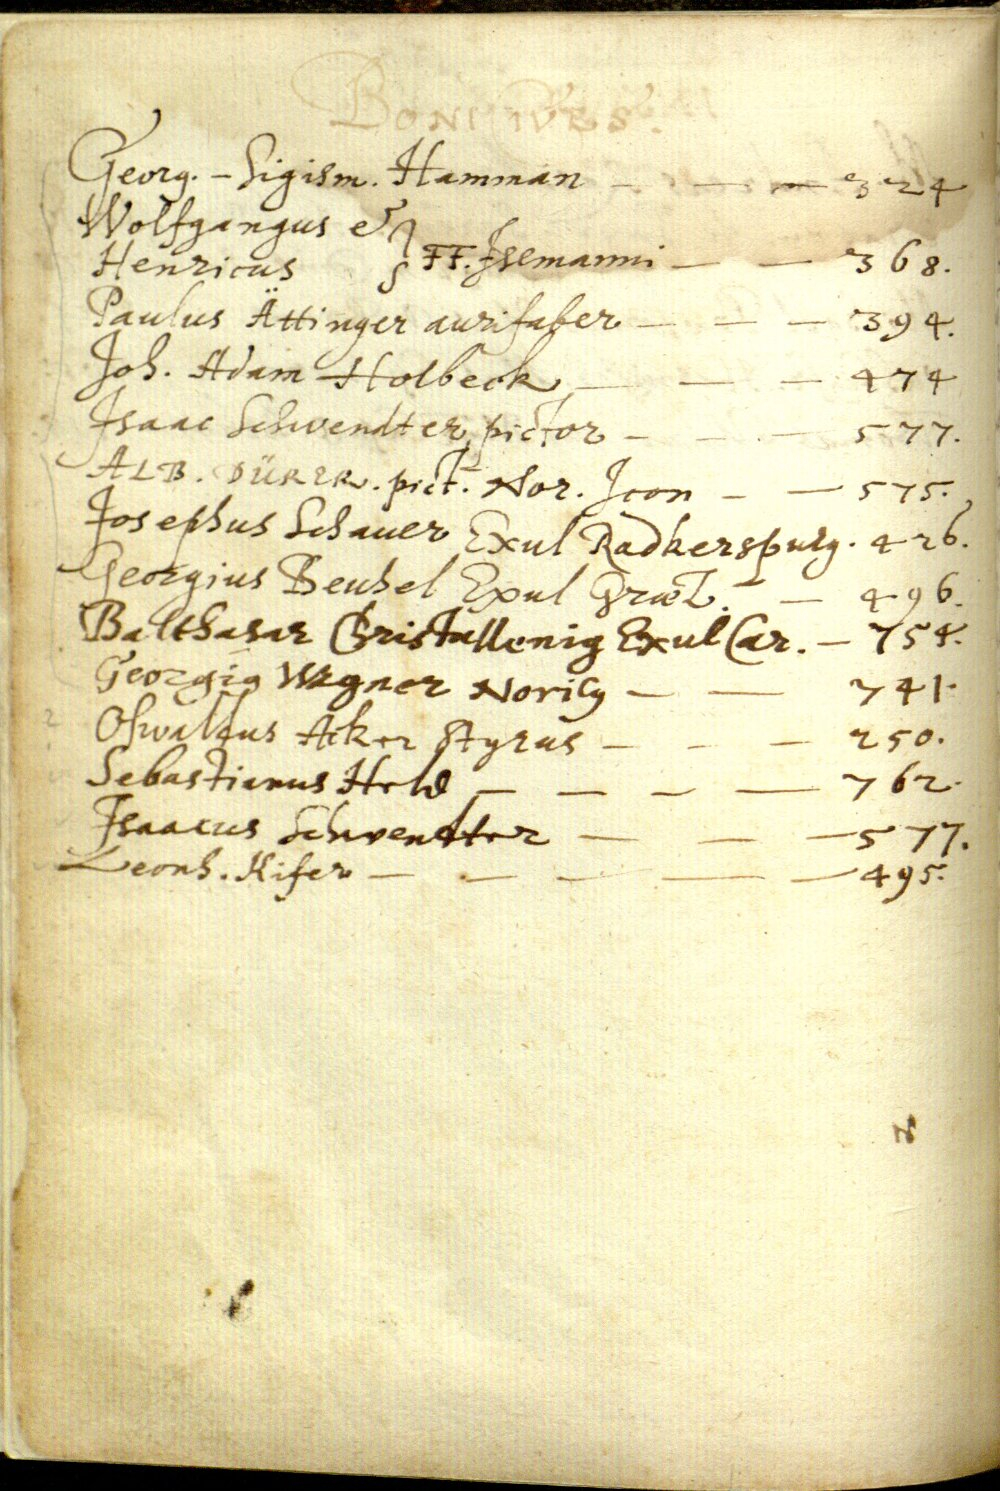 Georg. - Sigism. Hamman — — — 324
Wolfgangus &
Henricus } FF. Isemanni — — 368.
Paulus Ättinger aurifaber — — — 394.
Joh. Adam Holbeck — — — 474
Isaac Schwendter pictor — — — 577.
ALB. DÜRER. pict. Nor. Icon — — 575.
Josephus Schauer Exul Radkerspurg. 426.
Georgius Beuhel Exul Græt. — 496.
Balthasar Christallenig Exul Car. — 754.
Georgig Wagner Noricg — — 741.
Oswaldus Acker Styrus — — — 250.
Sebastianus Held — — — — 762.
Isaacus Schwendter — — — 577.
Leonh. Kifer — — — — — 495.